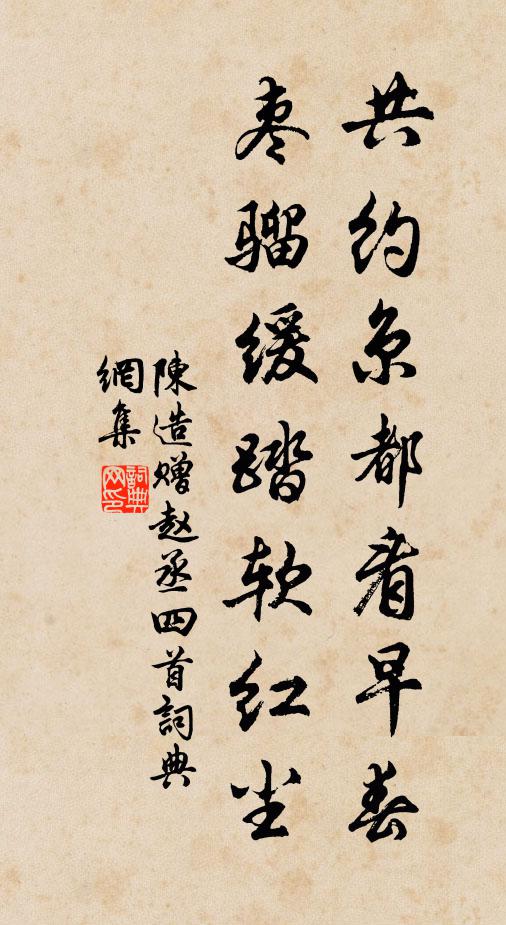 共约京都看早春
枣骝缓踏软红尘
陳造赠赵丞四首詞典
網集
詞典
网印